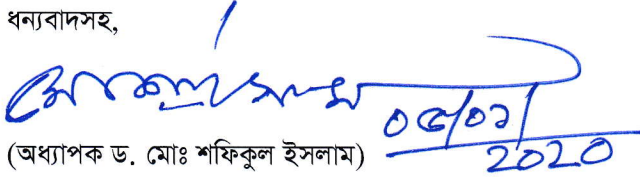 ধন্যবাদসহ,
০৫/০১/
2020
(অধ্যাপক ড. মোঃ শফিকুল ইসলাম)